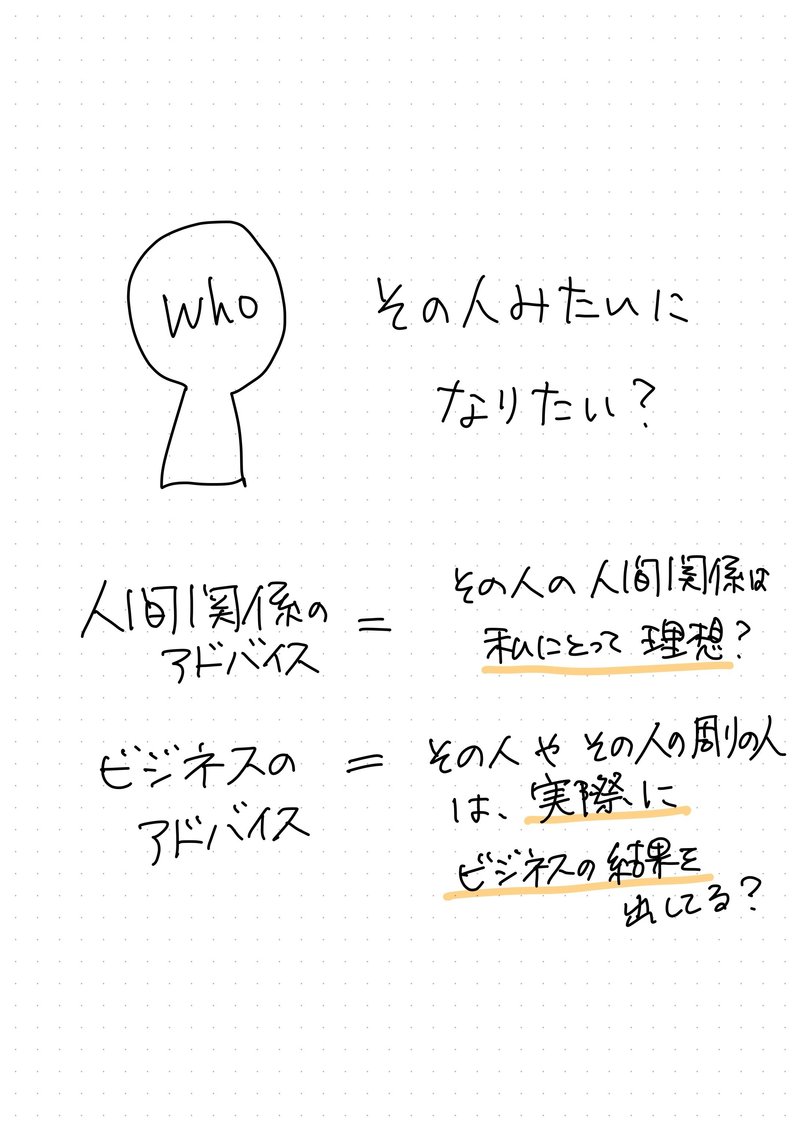 who
その人みたいに
なりたい？
人間関係の
アドバイス
=
その人の人間関係は
私にとって理想？
ビジネスの
アドバイス
=
その人やその人の周りの人
は、実際に
ビジネスの結果を
出してる？